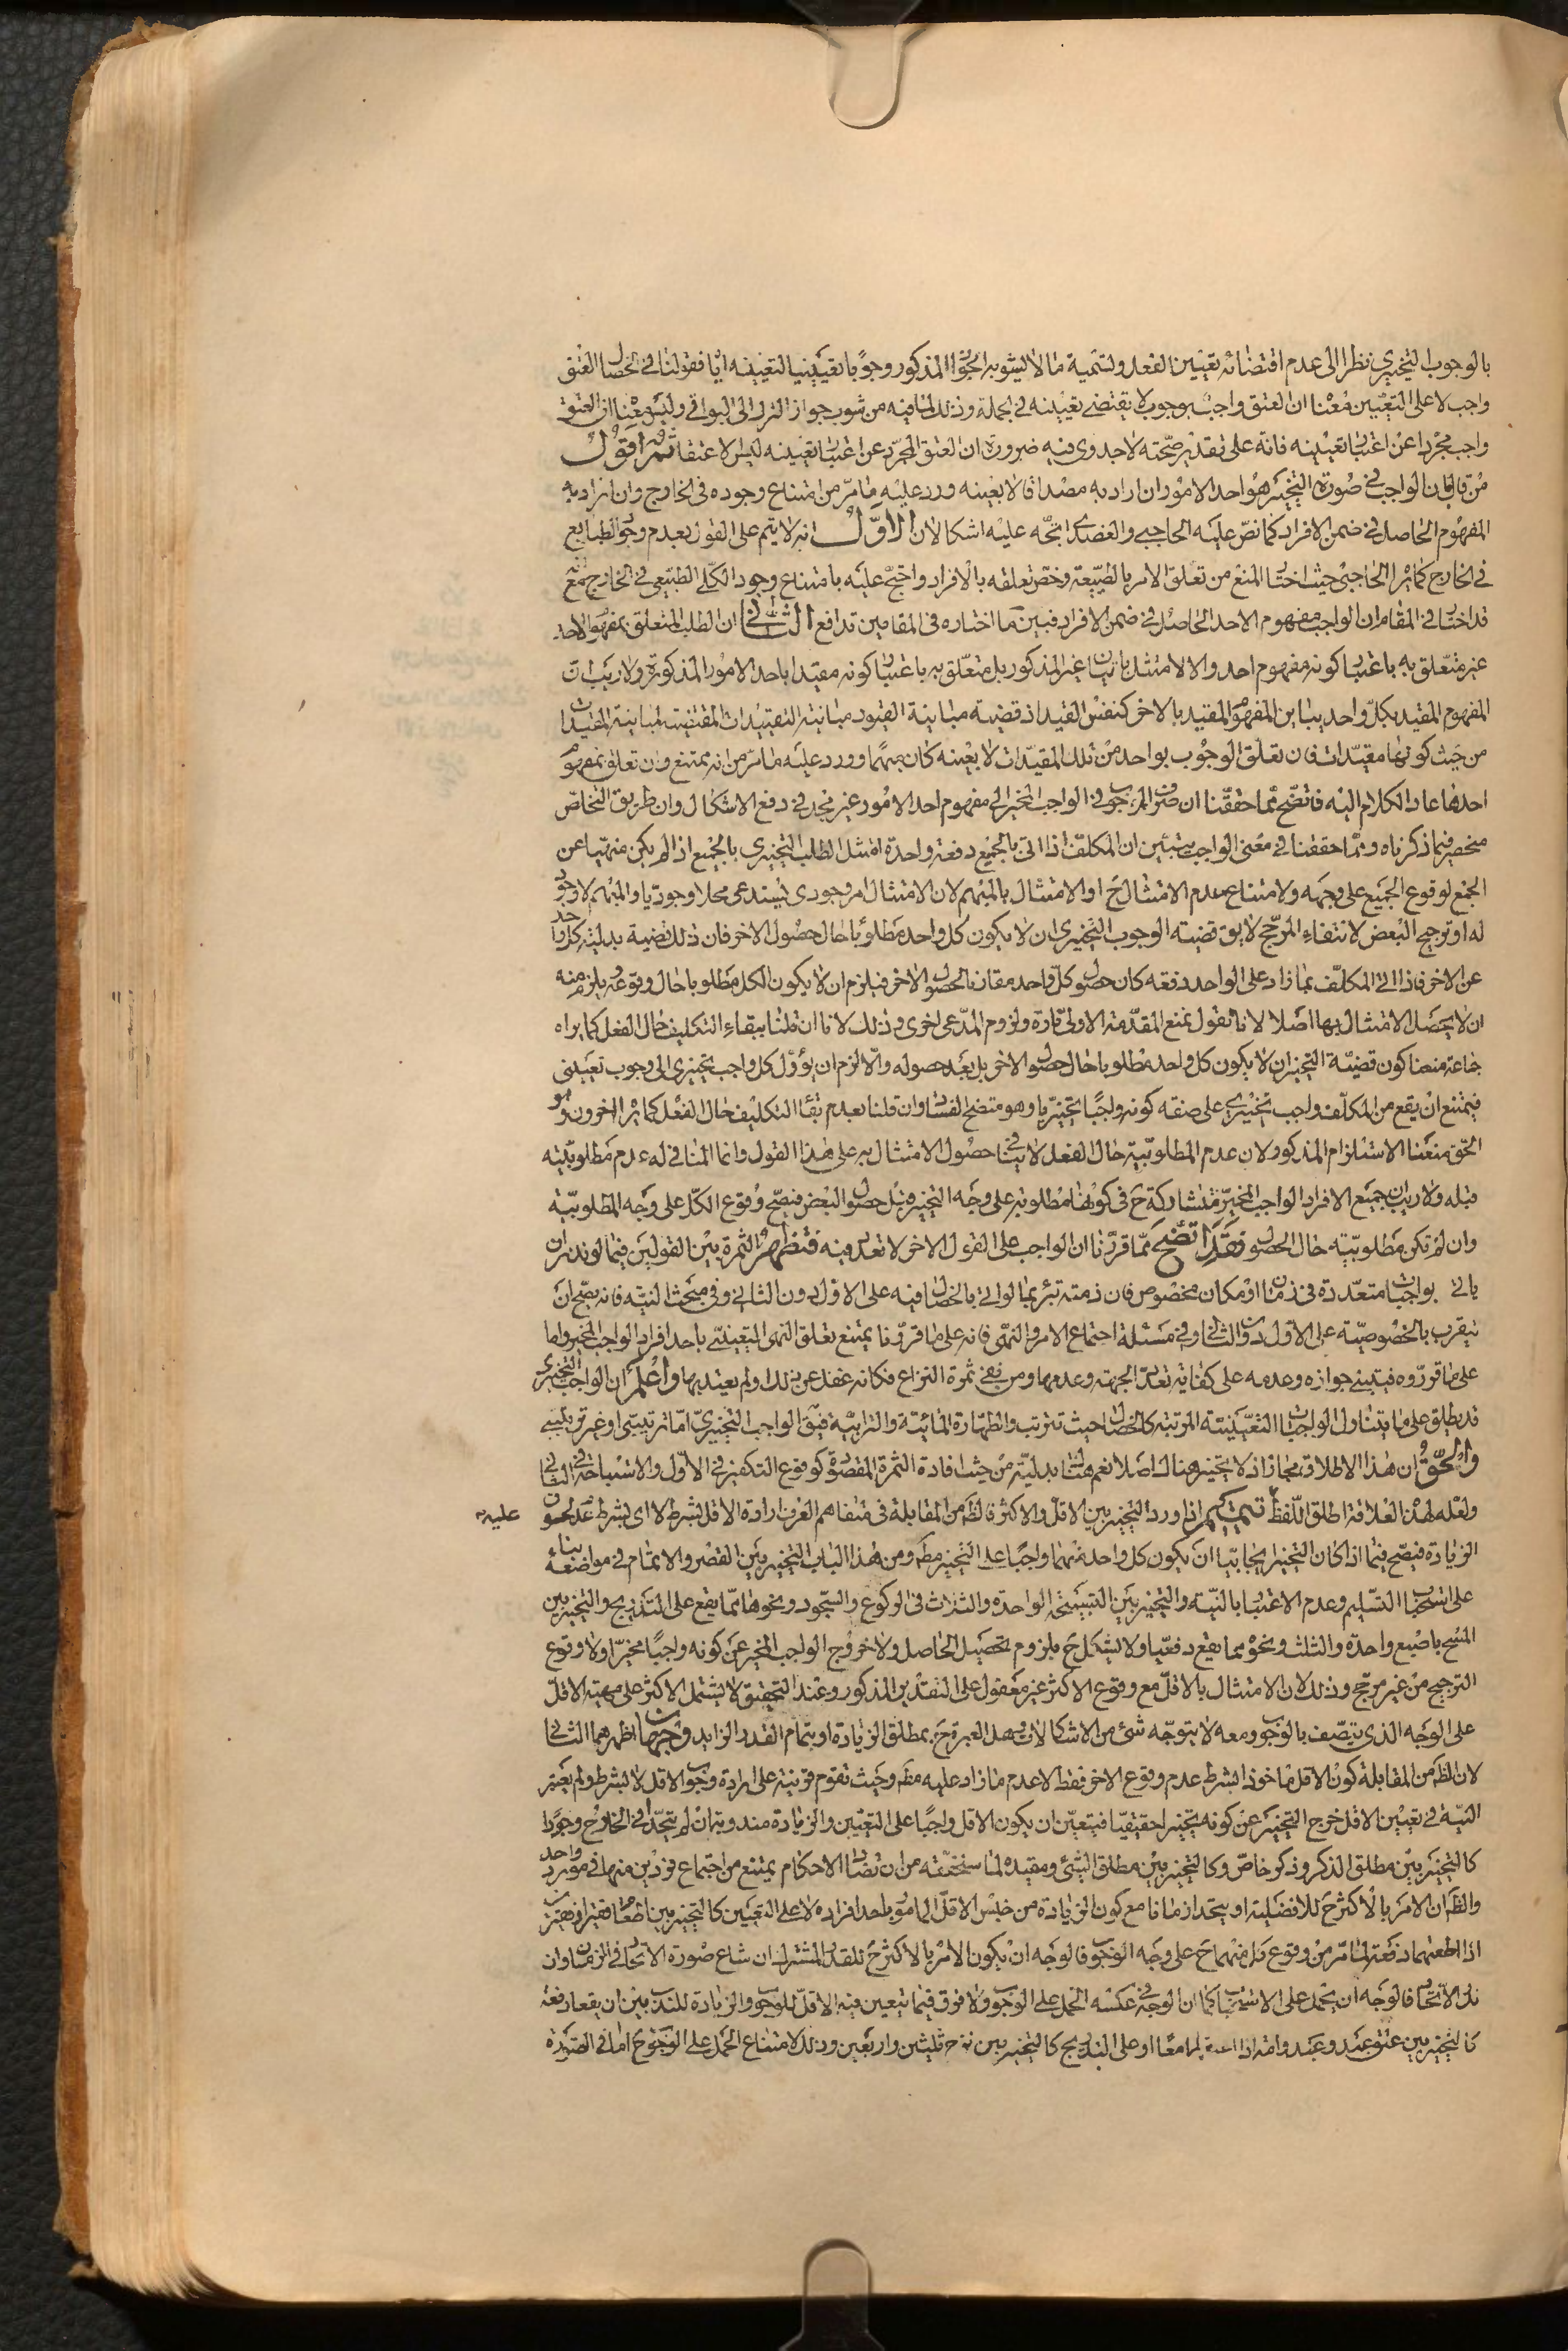 بالوجوب التخييرى نظرا الى عدم اقتضائه تعيين الفعل ولتسمية ما لا يشوبه الجواز المذكور وجوبا تعيينيا لتعيينه اياه فقولنا فى خصال العتق
واجب لا على التعيين معناه ان العتق واجب بوجوب لا يقتضى تعيينه فى الجملة وذلك لما فيه من شوب جواز الترك الى البواقى وليس معناه ان العتق
واجب مجردا عن اعتبار تعيينه فانه على تقدير صحته لا جدوى فيه ضرورة ان العتق المجرد عن اعتبار تعيينه ليس الا عتقا ثم اقول
من قال بان الواجب فى صورة التخيير هو احد الامور ان اراد به مصداقا لا بعينه ورد عليه ما مرّ من امتناع وجوده فى الخارج وان اراد به
المفهوم الحاصل فى ضمن الافراد كما نصّ عليه الحاجبى والعضدى اتجّه عليه اشكالان الاوّل انه لا يتم على القول بعدم وجود الطبايع
فى الخارج كما يراه الحاجبى حيث اختار المنع من تعلق الامر بالطبيعة وخصّ تعلقه بالافراد واحتج عليه بامتناع وجود الكلى الطبيعى فى الخارج مع انه
قد اختار فى المقام ان الواجب مفهوم الاحد الحاصل فى ضمن الافراد فبين ما اختاره فى المقامين تدافع الثانى ان الطلب المتعلق بمفهوم الاحد
غير متعلق به باعتبار كونه مفهوم احد والا لامتثل باتيان غير المذكور بل متعلق به باعتبار كونه مقيدا باحد الامور المذكورة ولا ريب ان
المفهوم المقيد بكل واحد يباين المفهوم المقيد بالاخر كنفس القيد اذ قضية مباينة القيود مباينة التقييدات المقتضية لمباينة المقيدات
من حيث كونها مقيدات فان تعلق الوجوب بواحد من تلك المقيدات لا بعينه كان مبهما وورد عليه ما مرّ من انه ممتنع وان تعلق بمفهوم
احدها عاد الكلام اليه فاتضح مما حققنا ان صرف الوجوب فى الواجب المخير الى مفهوم احد الامور غير مجد فى دفع الاشكال وان طريق التخلص
منحصر فيما ذكرناه ومما حققنا فى معنى الواجب يتبين ان المكلف اذا اتى بالجميع دفعة واحدة امتثل الطلب التخييرى بالجميع اذا لم يكن منهيا عن
الجمع لوقوع الجميع على وجهه ولامتناع عدم الامتثال ح او الامتثال بالمبهم لان الامتثال امر وجودى يستدعى محلا وجوديا والمبهم لا وجود
له او ترجيح البعض لانتفاء المرجح لا يق قضية الوجوب التخييرى ان لا يكون كل واحد مطلوبا حال حصول الاخر فان ذلك قضية بدلية كل واحد
عن الاخر فاذا اتى المكلف بما زاد على الواحد دفعه كان حصول كل واحد مقارنا لحصول الاخر فيلزم ان لا يكون الكل مطلوبا حال وقوعه ويلزم منه
ان لا يحصل الامتثال بها اصلا لانا نقول بمنع المقدمة الاولى تارة ولزوم المدعى اخرى وذلك لانا ان قلنا ببقاء التكليف حال الفعل كما يراه
جماعة منعنا كون قضية التخيير ان لا يكون كل واحد مطلوبا حال حصول الاخر بل بعد حصوله والا لزم ان يؤول كل واجب تخييرى الى وجوب تعيينى
فيمتنع ان يقع من المكلف واجب تخييرى على صفة كونه واجبا تخييريا وهو متضح الفساد وان قلنا بعدم بقاء التكليف حال الفعل كما يراه اخرون وهو
الحق منعنا الاستلزام المذكور لان عدم المطلوبية حال الفعل لا ينافى حصول الامتثال به على هذا القول وانما المنافى له عدم مطلوبيته
قبله ولا ريب ان جميع الافراد الواجب المخير متشاركة ح فى كونها مطلوبة على وجه التخيير قبل حصول البعض فيصح وقوع الكل على وجه المطلوبية
وان لم تكن مطلوبيته حال الحصول وقد اتضح مما قررنا ان الواجب على القول الاخر لا تعدد فيه فتظهر الثمرة بين القولين فيما لو نذر ان
ياتى بواجبات متعددة فى زمان او مكان مخصوص فان ذمته تبرء بما لو اتى بالخصال فيه على الاول دون الثانى وفى مبحث النية فانه يصح ان
يتقرب بالخصوصية على الاول دون الثانى وفى مسئلة اجتماع الامر والنهى فانه على ما قررنا يمتنع تعلق النهى التعيينى باحد افراد الواجب المخير واما
على ما قرروه فيبتنى جوازه وعدمه على كفاية تعدد الجهة وعدمها ومن نفى ثمرة النزاع فكانه غفل عن ذلك او لم يعتد بها واعلم ان الواجب التخييرى
قد يطلق على ما يتناول الواجبات التعيينية المرتبة كالخصال حيث تترتب والطهارة المائية والترابية فيق الواجب التخييرى اما ترتيبى او غير ترتيبى
والحق ان هذا الاطلاق مجاز اذ لا تخيير هناك اصلا نعم هناك بدلية من حيث افادة الثمرة المقصودة كوقوع التكفير فى الاول والاستباحة فى الثانى
ولعله لهذه العلاقة اطلق اللفظ تتميم اذا ورد التخيير بين الاقل والاكثر فالظ من المقابلة فى متفاهم العرف ارادة الاقل بشرط لا اى بشرط عدم لحوق عليه
الزيادة فيصح فيما اذا كان التخيير ايجابيا ان يكون كل واحد منهما واجبا على التخيير مط ومن هذا الباب التخيير بين القصر والاتمام فى مواضعه بناء
على استحباب التسليم وعدم الاعتبار بالنية والتخيير بين التسبيحة الواحدة والثلاث فى الركوع والسجود ونحوها مما يقع على التدريج والتخيير بين
المسح باصبع واحدة والثلث ونحو مما يقع دفعيا ولا يشكل ح بلزوم تحصيل الحاصل ولا خروج الواجب المخير عن كونه واجبا مخيرا ولا وقوع
الترجيح من غير مرجح وذلك لان الامتثال بالاقل مع وقوع الاكثر غير معقول على التقدير المذكور وعند التحقيق لا يشتمل الاكثر على مهية الاقل
على الوجه الذى يتصف بالوجوب ومعه لا يتوجه شئ من الاشكالات وهل العبرة ح بمطلق الزيادة او بتمام القدر الزايد وجهان اظهرهما الثانى
لان الظ من المقابلة كون الاقل ماخوذا بشرط عدم وقوع الاخر فقط لا عدم ما زاد عليه مط وحيث تقوم قرينة على ارادة وجوب الاقل لا بشرط ولم يعتبر
النية فى تعيين الاقل خرج التخيير عن كونه تخييرا حقيقيا فيتعين ان يكون الاقل واجبا على التعيين والزيادة مندوبة ان لم يتحدا فى الخارج وجودا
كالتخيير بين مطلق الذكر وذكر خاص وكالتخيير بين مطلق الشئ ومقيده لما سنحققه من ان تضاد الاحكام يمتنع من اجتماع فردين منها فى مورد واحد
والظ ان الامر بالاكثر ح للافضلية او يتحدا زمانا مع كون الزيادة من جنس الاقل المامور باحد افراده لا على التعيين كالتخيير بين اطعام فقير او فقيرين
اذا اطعمهما دفعة لما مرّ من وقوع كل منهما ح على وجه الوجوب فالوجه ان يكون الامر بالاكثر ح للقدر المشترك ان شاع صورة الاتحاد فى الزمان وان
ندر الاتحاد فالوجه ان يحمل على الاستحباب كما ان الوجه فى عكسه الحمل على الوجوب ولا فرق فيما يتعين فيه الاقل للوجوب والزيادة للندب بين ان يقعا دفعة
كالتخيير بين عتق عبد وعبد وامة اذا معا او على التدريج كالتخيير بين نزح ثلثين واربعين وذلك لامتناع الحمل على الوجوب ح اما فى الصورة